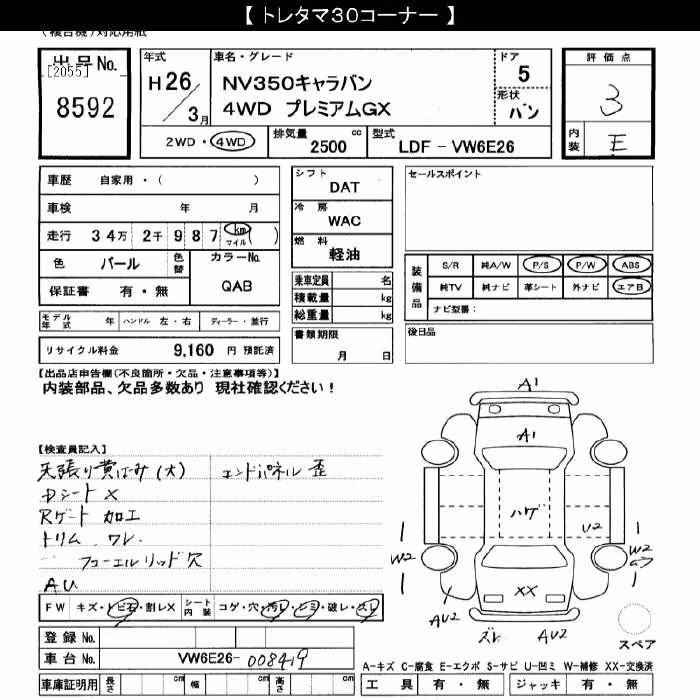 【トレタマ30コーナー】
(複合機)対応用紙
出品No. [2055] 8592
年式 H26/3月
車名・グレード NV350キャラバン 4WD プレミアムGX
ドア 5
形状 バン
評価点 3
内装 E
2WD・4WD 排気量 2500cc 型式 LDF-VW6E26
車歴 自家用・( )
車検 年 月
走行 34万2千987 km マイル ( )
色 パール 色替 カラーNo. QAB
保証書 有・無
シフト DAT
冷房 WAC
燃料 軽油
乗車定員 名
積載量 kg
総重量 kg
書類期限 月 日
セールスポイント
装備品 S/R 純A/W P/S P/W ABS
純TV 純ナビ 革シート 外ナビ エアB
ナビ型番:
後日品
モデル年式 年 ハンドル 左・右 ディーラー・並行
リサイクル料金 9,160 円 預託済
【出品店申告欄(不良箇所・欠品・注意事項等)】
内装部品、欠品多数あり 現社確認ください!
【検査員記入】
天張り黄ばみ(大) エンドパネル 歪
Dシート X
Rゲート 加工
トリム ワレ
フューエルリッド穴
A.U.
A1
A1
ハゲ
U2
W2
W2
XX
AU2
AU2
スペア
FW キズ・トビ石・割レX シート内装 コゲ・穴・汚レ・シミ・破レ・スレ
登録No.
車台No. VW6E26-008419
A-キズ C-腐食 E-エクボ S-サビ U-凹ミ W-補修 XX-交換済
車庫証明用 長さ cm 幅 cm 高さ cm
工具 有・無 ジャッキ 有・無